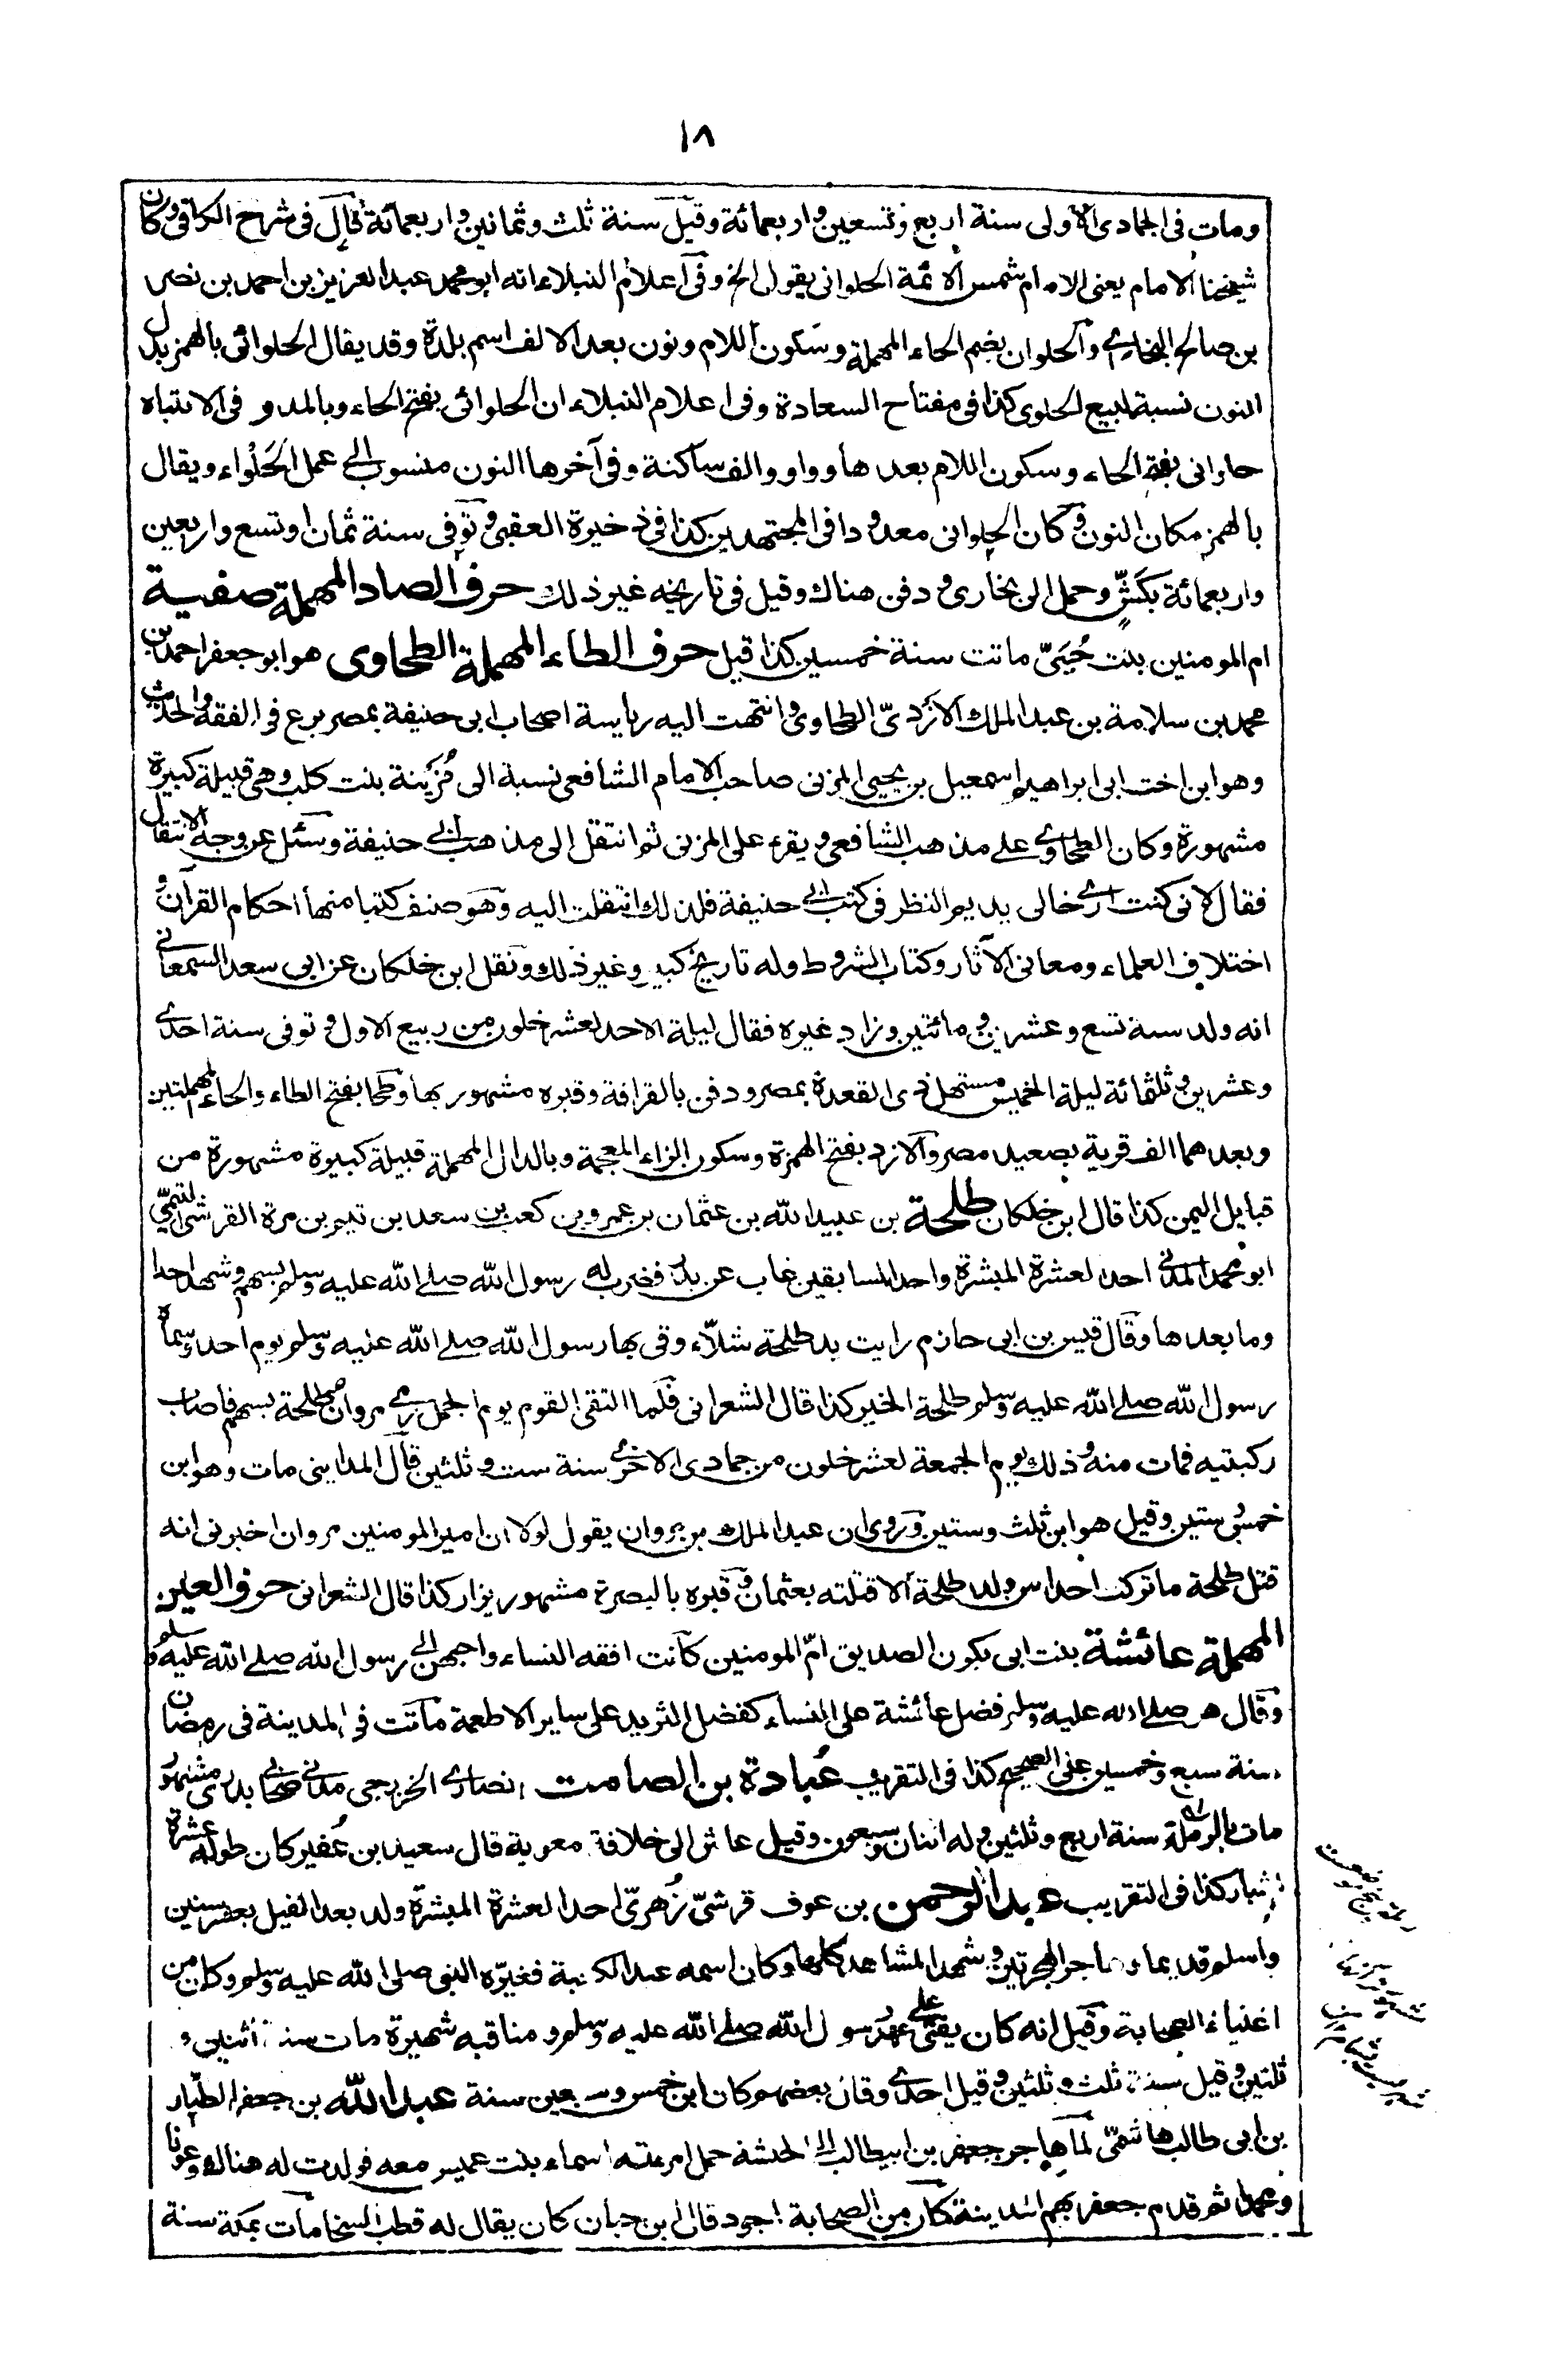 ١٨
ومات فى الجمادى الاولى سنة اربع وتسعين واربعمائة وقيل سنة ثلث وثمانين واربعمائة قال فى شرح الكافى وكان
شيخنا الامام يعنى الامام شمس الائمة الحلوانى يقول الخ وفى اعلام النبلاء انه ابو محمد عبد العزيز بن احمد بن نصر
بن صالح البخارى والحلوان بضم الحاء المهملة وسكون اللام ونون بعد الالف اسم بلدة وقد يقال الحلوائى بالهمز بدل
النون نسبة لبيع الحلوى كذا فى مفتاح السعادة وفى اعلام النبلاء ان الحلوائى بفتح الحاء وبالمد و فى الانتباه
حلوانى بفتح الحاء وسكون اللام بعدها وواو والف ساكنة وفى آخرها النون منسوب الى عمل الحَلْواء ويقال
بالهمز مكان النون وكان الحلوانى معدودا فى المجتهدين كذا فى ذخيرة العقبى وتوفى سنة ثمان او تسع واربعين
واربعمائة بكَشّ وحمل الى بخارى ودفن هناك وقيل فى تاريخه غير ذلك حرف الصاد المهملة صفية
ام المومنين بنت حُيَىّ ماتت سنة خمسين كذا قيل حرف الطاء المهملة الطحاوى هو ابو جعفر احمد بن
محمد بن سلامة بن عبد الملك الازدىّ الطحاوى وانتهت اليه رياسة اصحاب ابى حنيفة بمصر برع فى الفقه والحديث
وهو ابن اخت ابى ابراهيم اسمعيل بن يحيى المزنى صاحب الامام الشافعى نسبة الى مُزَينة بنت كلب وهى قبيلة كبيرة
مشهورة وكان الطحاوى على مذهب الشافعى ويقرء على المزنى ثم انتقل الى مذهب ابى حنيفة وسئل عن وجه الانتقال
فقال لانى كنت ارى خالى يديم النظر فى كتب ابى حنيفة فلذلك انتقلت اليه وهو صنف كتبا منها احكام القرآن و
اختلاف العلماء ومعانى الآثار وكتاب الشروط وله تاريخ كبير وغير ذلك ونقل ابن خلكان عن ابى سعد السمعانى
انه ولد سنة تسع وعشرين ومائتين وزاد غيره فقال ليلة الاحد لعشر خلون من ربيع الاول وتوفى سنة احدى
وعشرين وثلثمائة ليلة الخميس مستهل ذى القعدة بمصر ودفن بالقرافة وقبره مشهور بها وطحا بفتح الطاء والحاء المهملتين
وبعدهما الف قرية بصعيد مصر والازد بفتح الهمزة وسكون الزاء المعجمة وبالدال المهملة قبيلة كبيرة مشهورة من
قبايل اليمن كذا قال ابن خلكان طلحة بن عبيد الله بن عثمان بن عمرو بن كعب بن سعد بن تيم بن مرة القرشى التيمىّ
ابو محمد المدنى احد العشرة المبشرة واحد السابقين غاب عن بدر فضرب له رسول الله صلى الله عليه وسلم بسهم وشهد احدا
وما بعدها وقال قيس بن ابى حازم رايت يد طلحة شلّاء وقى بها رسول الله صلى الله عليه وسلم يوم احد وسماه
رسول الله صلى الله عليه وسلم طلحة الخير كذا قال الشعرانى فلما التقى القوم يوم الجمل رمى مروان طلحة بسهم فاصاب
ركبتيه فمات منه وذلك يوم الجمعة لعشر خلون من جمادى الاخرى سنة ست وثلثين قال المداينى مات وهو ابن
خمس وستين وقيل هو ابن ثلث وستين وروى ان عبد الملك بن مروان يقول لولا ان امير المومنين مروان اخبرنى انه
قتل طلحة ما تركت احدا من ولد طلحة الا قتلته بعثمان وقبره بالبصرة مشهور يزار كذا قال الشعرانى حرف العين
المهملة عائشة بنت ابى بكر الصديق امّ المومنين كانت افقه النساء واحبهن الى رسول الله صلى الله عليه وسلم
وقال هو صلى الله عليه وسلم فضل عائشة على النساء كفضل الثريد على ساير الاطعمة ماتت فى المدينة فى رمضان
سنة سبع وخمسين على الصحيح كذا فى التقريب عُبادة بن الصامت انصارى الخزرجى مدنى صحابى بدرى مشهور
مات بالرملة سنة اربع وثلثين وله اثنان وسبعون وقيل عاش الى خلافة معوية قال سعيد بن عُفير كان طوله عشرة
اشبار كذا فى التقريب عبد الرحمن بن عوف قرشىّ زُهرىّ احد العشرة المبشرة ولد بعد الفيل بعشر سنين
واسلم قديما وهاجر الهجرتين وشهد المشاهد كلها وكان اسمه عبد الكعبة فغيّره النبى صلى الله عليه وسلم وكان من
اغنياء الصحابة وقيل انه كان يفتى على عهد رسول الله صلى الله عليه وسلم ومناقبه شهيرة مات سنة اثنين و
ثلثين وقيل سنة ثلث وثلثين وقيل احدى وقال بعضهم كان ابن خمس وسبعين سنة عبد الله بن جعفر الطيار
بن ابى طالب هاشمىّ لما هاجر جعفر بن ابيطالب الى الحبشة حمل امرءته اسماء بنت عميس معه فولدت له هناك وعونا
ومحمدا ثم قدم جعفر بهم المدينة كان من الصحابة اجود قال ابن حبان كان يقال له قطب السخا مات بمكة سنة